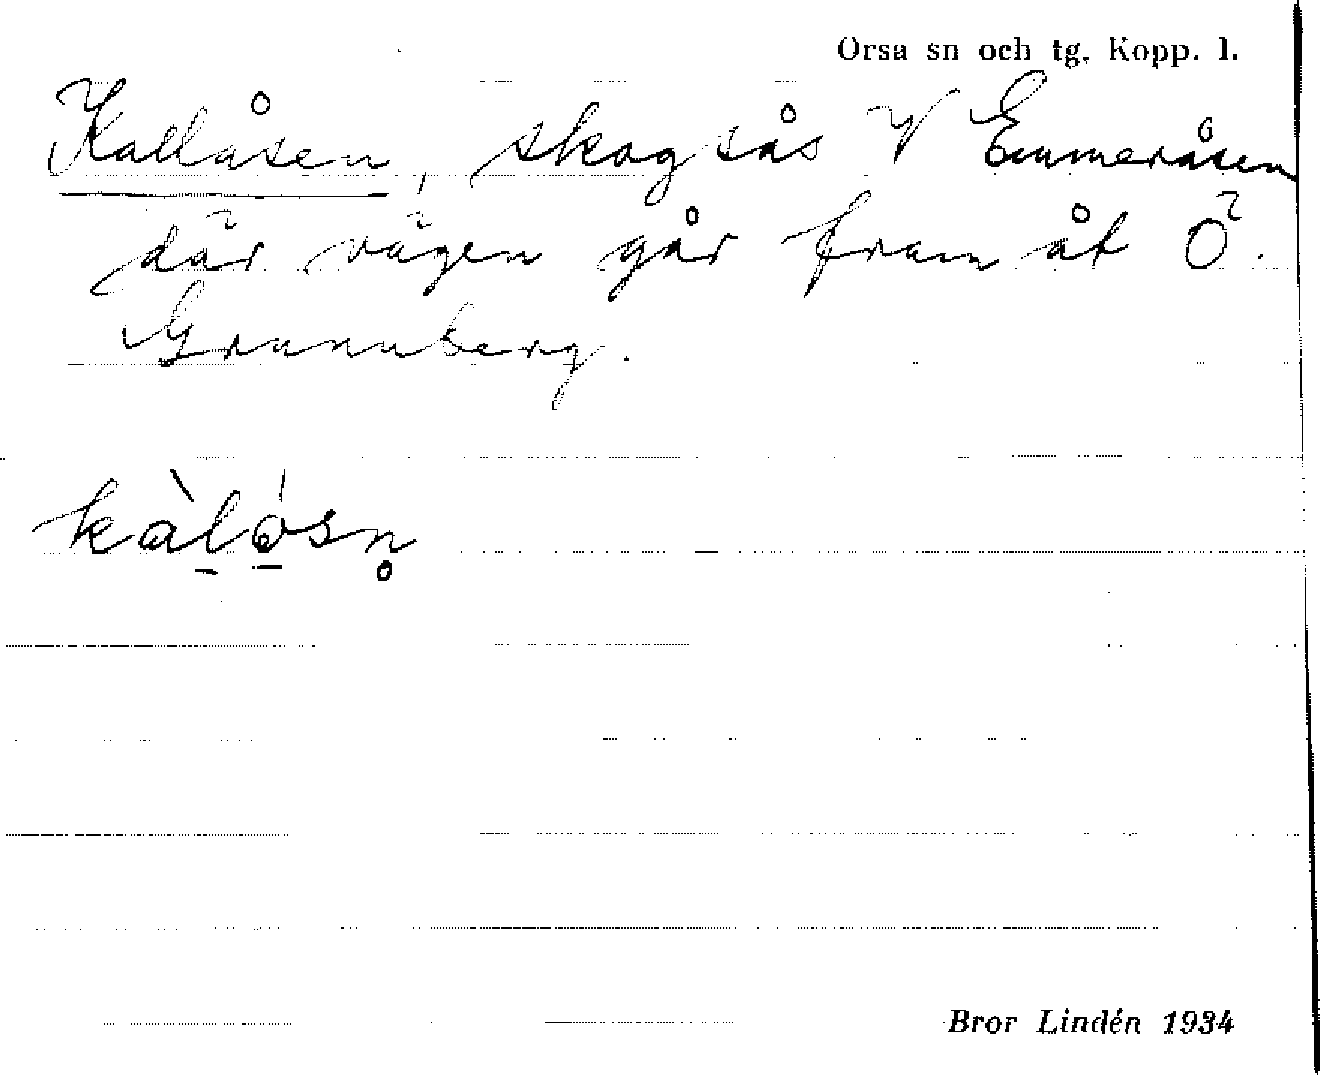 Orsa sn och tg. Kopp. l.
Kallåsen, skogsås V Emmeråsen
där vägen går fram åt Ö.
Grunuberg.
kàlǫ́sn̥
Bror Lindén 1934